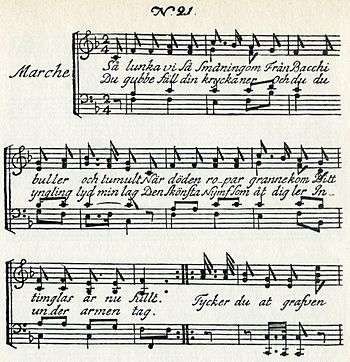 No 21.
Marche
Så lunka vi så småningom Från Bacchi
Du gubbe fäll din krycka ner Och du du
buller och tumult När döden ropar granne kom Ditt
yngling lyd min lag Den skönsta Nymf som åt dig ler In_
timglas är nu fullt. Tycker du at grafven
under armen tag.